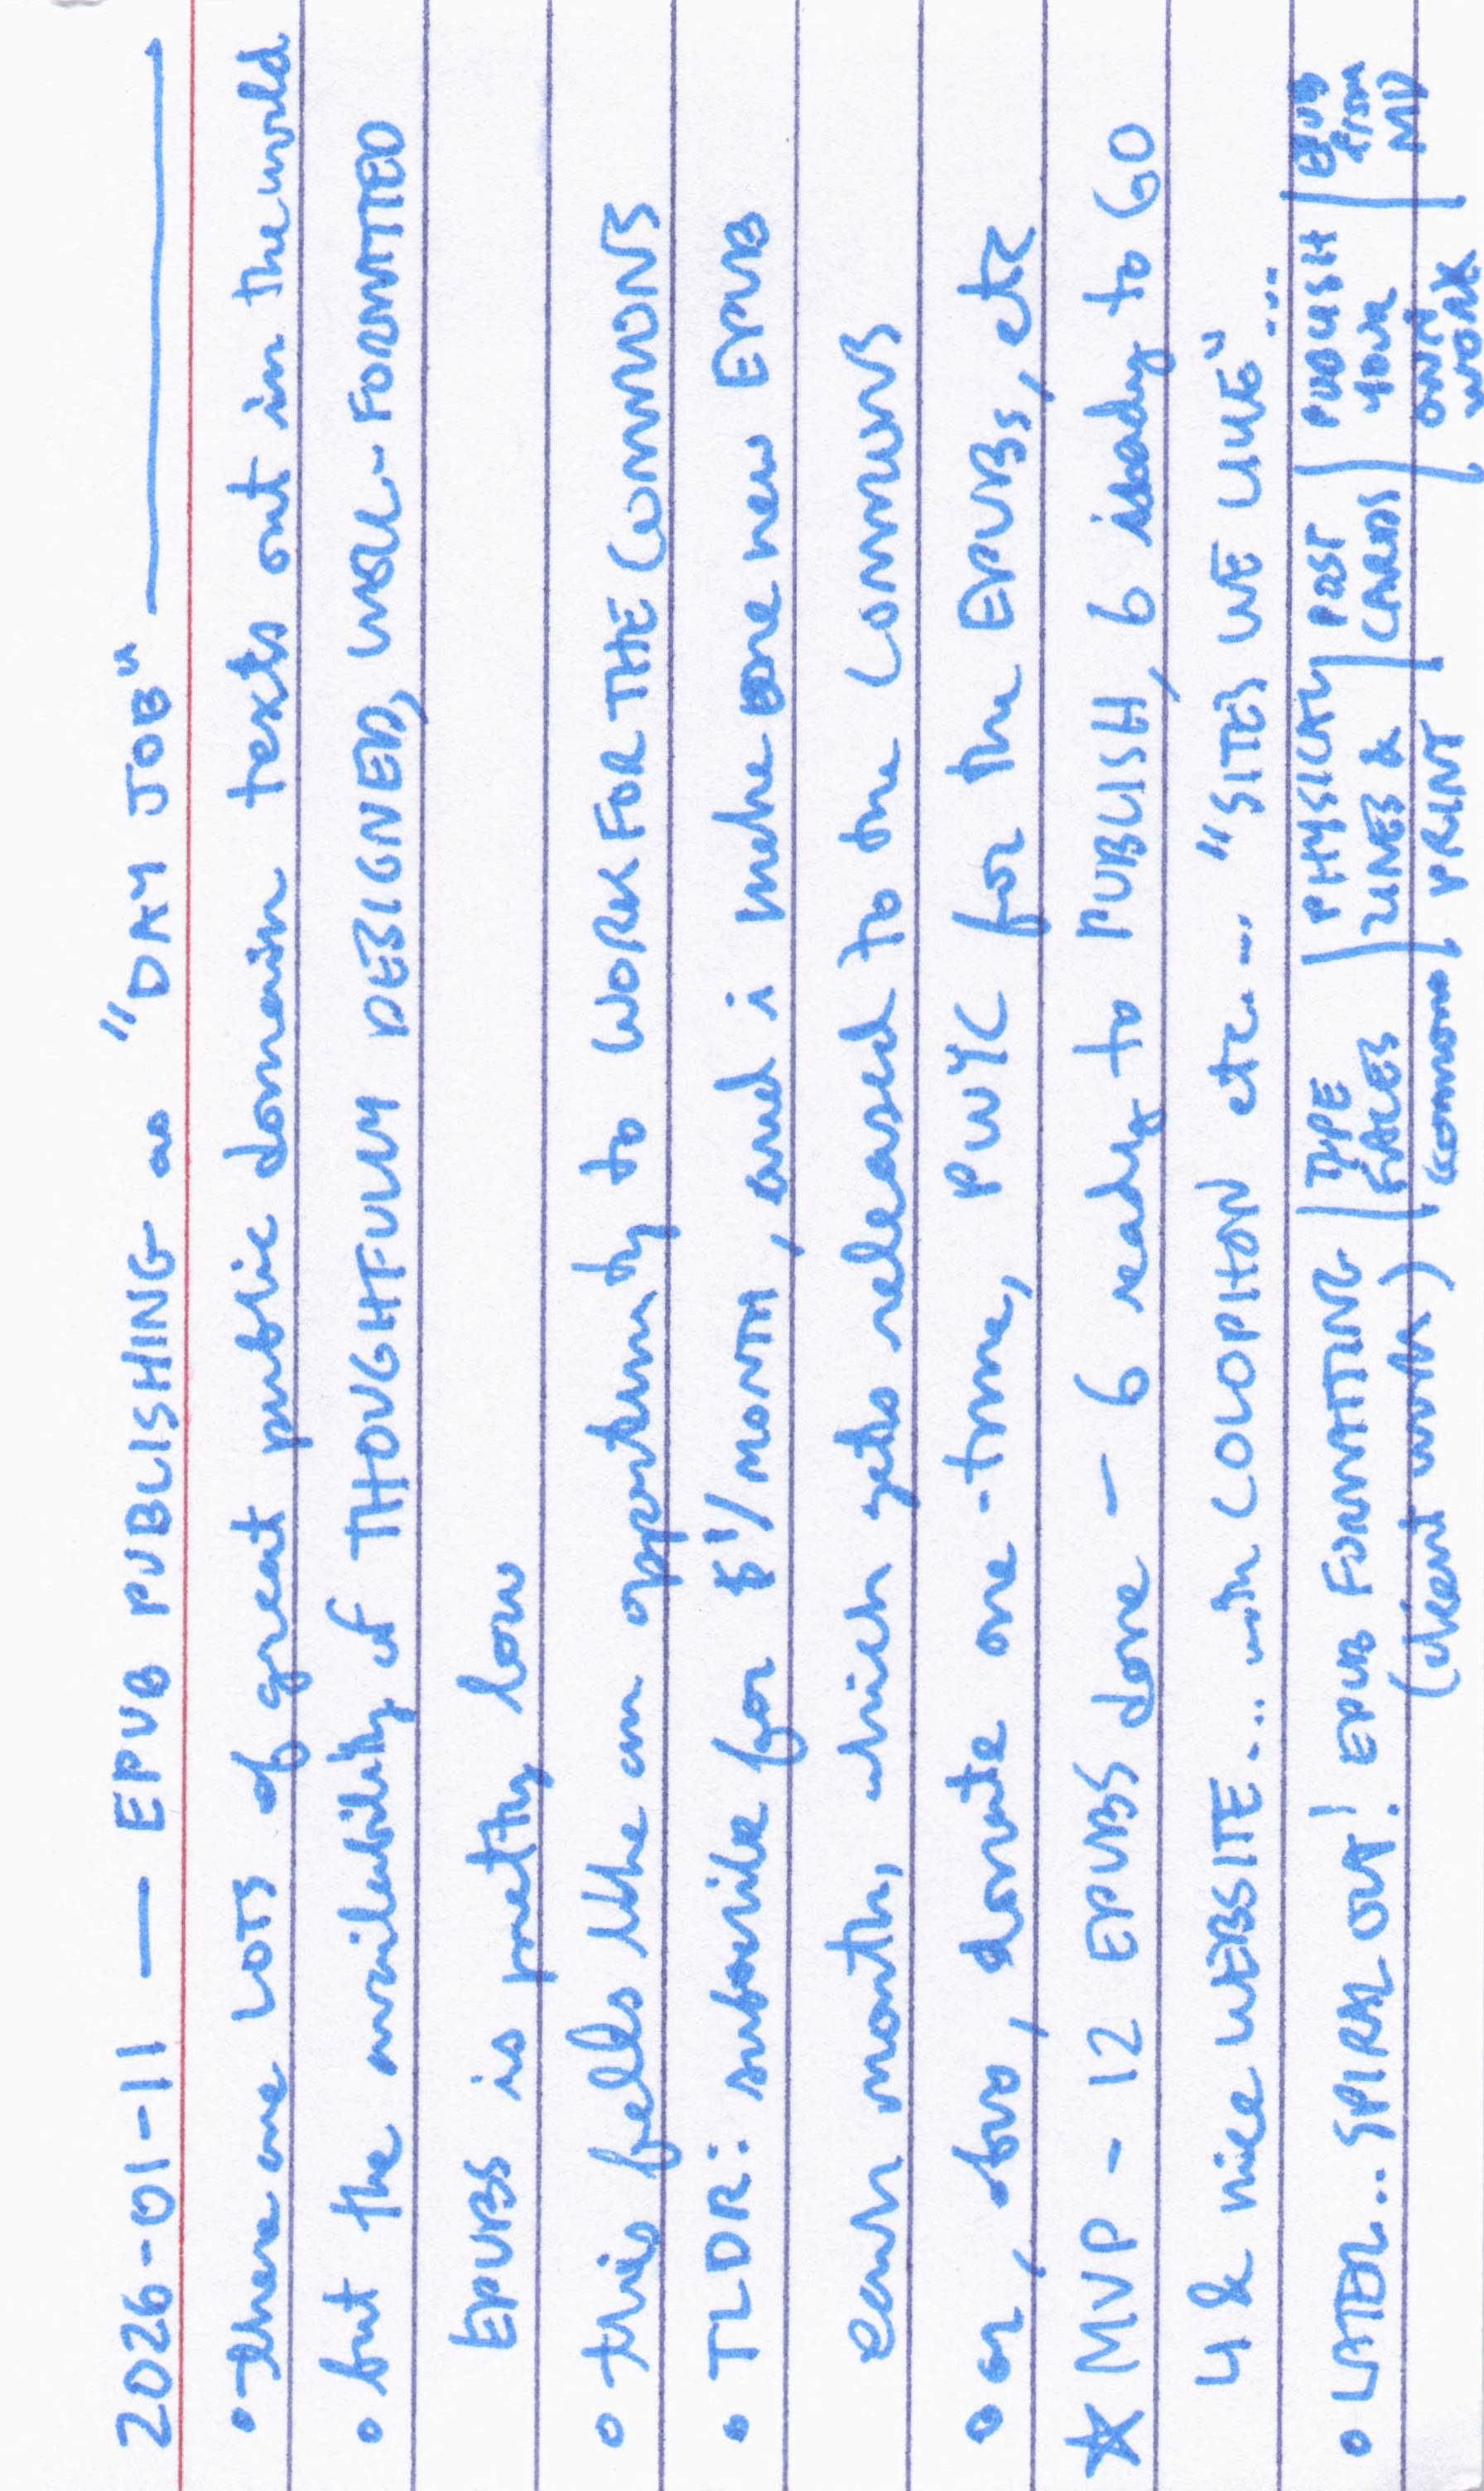 2026-01-11 — EPUB PUBLISHING as "DAY JOB" —
• there are LOTS of great public domain texts out in the world
• but the availability of THOUGHTFULLY DESIGNED, WELL-FORMATTED
EPUBS is pretty low
• this feels like an opportunity to WORK FOR THE COMMONS
• TLDR: subscribe for $1/MONTH, and i make one new EPUB
each month, which gets released to the COMMONS
• or, two, donate one-time, PWYC for the EPUBs, etc
☆ MVP - 12 EPUBS done - 6 ready to PUBLISH, 6 ready to GO
↳ & nice WEBSITE... with COLOPHON etc... "SITES WE LIKE" ...
• LATER... SPIRAL OUT! EPUB FORMATTING (client work) | TYPE FACES | PHYSICAL ZINES & common PRINT | POST CARDS | PUBLISH YOUR OWN WORK | EPUB from MD